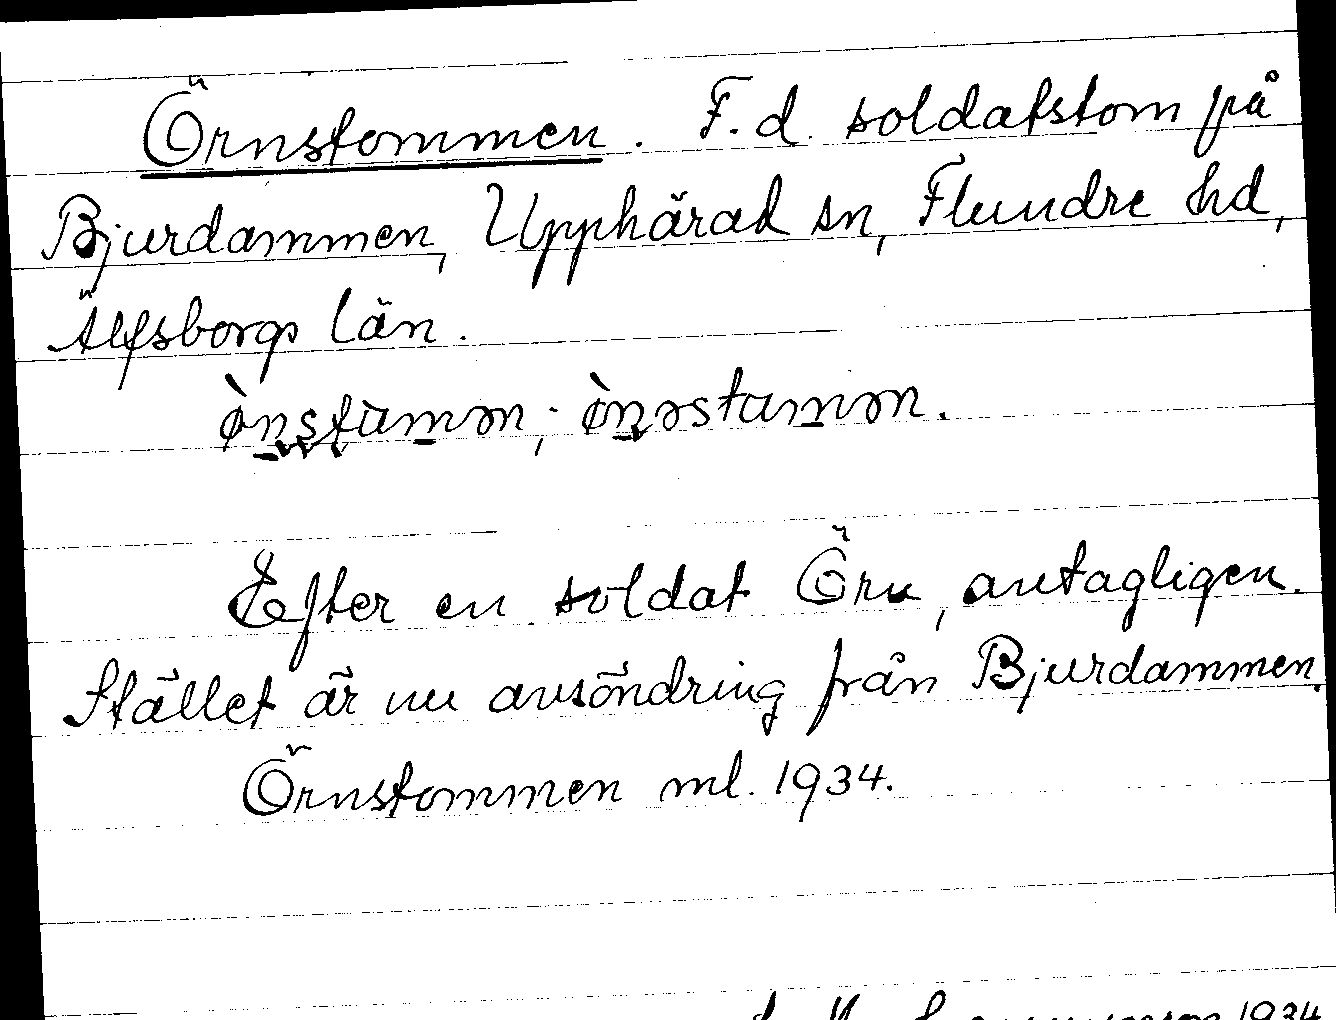 Örnstommen. F.d. soldatstom på
Bjurdammen, Upphärad sn, Flundre hd,
Älfsborgs län.
ònstamən; ònəstamən.
Efter en soldat Örn, antagligen.
Stället är nu avsöndring från Bjurdammen.
Örnstommen ml. 1934.
1934